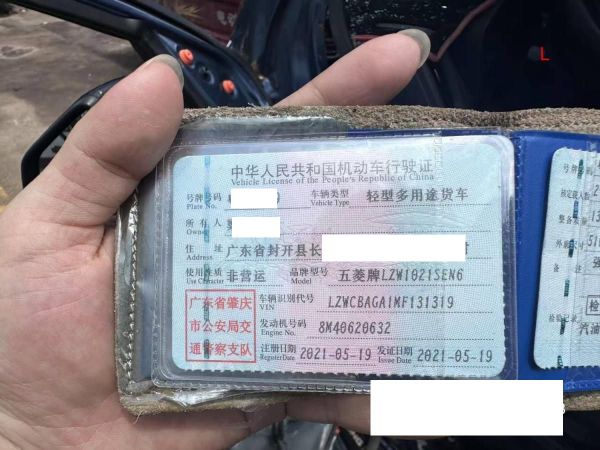 L
中华人民共和国机动车行驶证
Vehicle License of the People's Republic of China
号牌号码 车辆类型 轻型多用途货车
Plate No. Vehicle Type
所有人
Owner
住址 广东省封开县长
Address
使用性质 非营运 品牌型号 五菱牌LZW1021SEN6
Use Character Model
广东省肇庆
市公安局交
通警察支队
车辆识别代号 LZWCBAGA1MF131319
VIN
发动机号码 8M40620632
Engine No.
注册日期 2021-05-19 发证日期 2021-05-19
Register Date Issue Date
号牌号码
核定载人数
整备质量
外廓尺寸
备注
检验记录
汽油